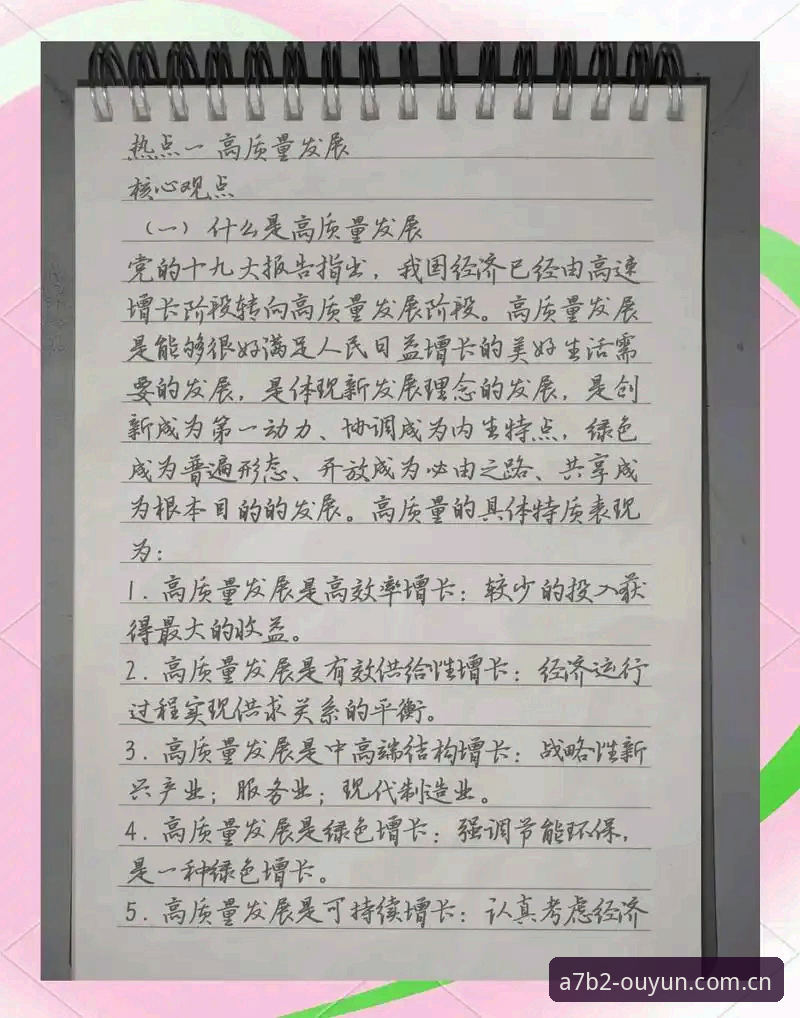 热点一 高质量发展
核心观点
（一）什么是高质量发展
党的十九大报告指出，我国经济已经由高速
增长阶段转向高质量发展阶段。高质量发展
是能够很好满足人民日益增长的美好生活需
要的发展，是体现新发展理念的发展，是创
新成为第一动力、协调成为内生特点，绿色
成为普遍形态、开放成为必由之路、共享成
为根本目的的发展。高质量的具体特质表现
为：
1. 高质量发展是高效率增长：较少的投入获
得最大的收益。
2. 高质量发展是有效供给性增长：经济运行
过程实现供求关系的平衡。
3. 高质量发展是中高端结构增长：战略性新
兴产业；服务业；现代制造业。
4. 高质量发展是绿色增长：强调节能环保，
是一种绿色增长。
5. 高质量发展是可持续增长：认真考虑经济
a7b2-ouyun.com.cn